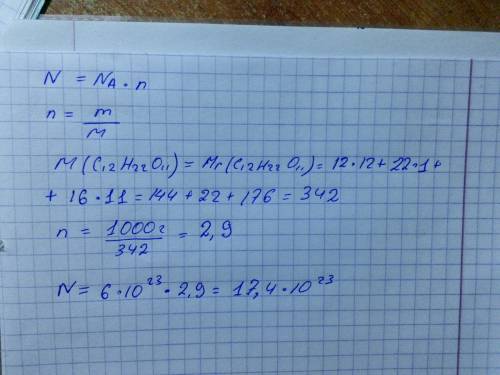 N = NA · n
n = m/M
M (C12H22O11) = Mr(C12H22O11) = 12·12 + 22·1 +
+ 16·11 = 144 + 22 + 176 = 342
n = 1000г/342 = 2,9
N = 6·10^23 · 2,9 = 17,4·10^23